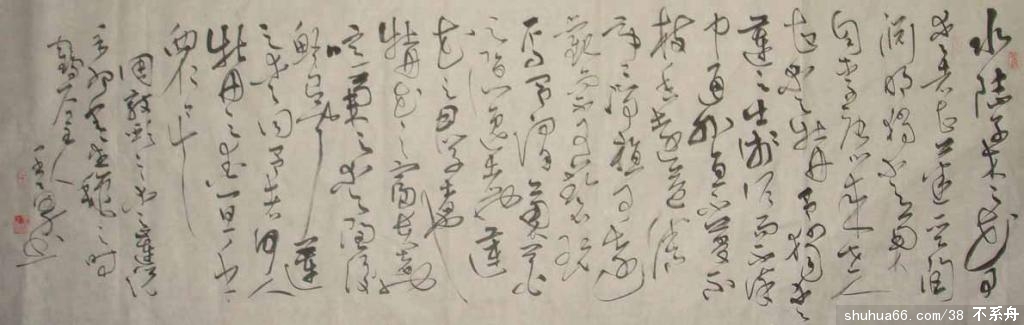 水陸草木之花可
愛者甚蕃晉陶
淵明獨愛菊
自李唐以來世人
甚愛牡丹予獨愛
蓮之出淤泥而不染
中通外直不蔓不
枝香遠益清
亭亭淨植可遠
觀而不可褻玩
焉予謂菊花
之隱逸者也蓮
花之君子者也
牡丹花之富貴者
噫菊之愛陶後
鮮有聞蓮
之愛同予者何人
牡丹之愛宜乎
衆矣
周敦頤之愛蓮說
shuhua66.com/38 不系舟